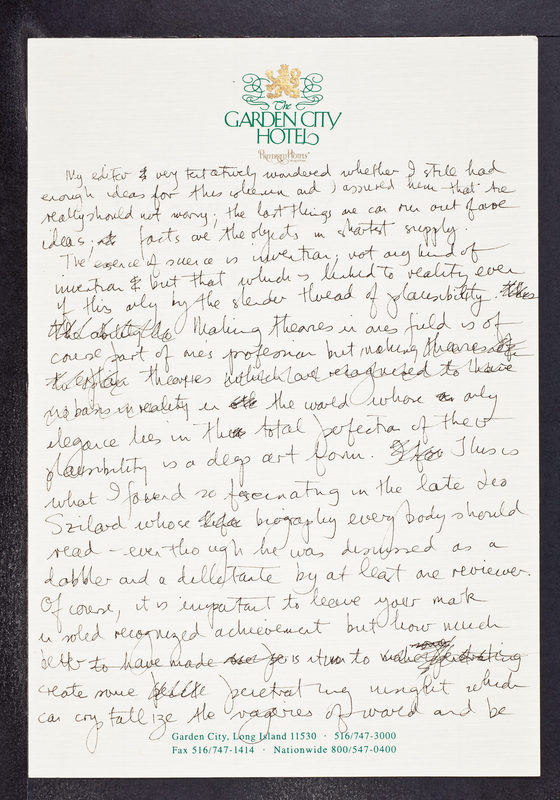 The
GARDEN CITY
HOTEL
PREFERRED HOTELS
My editor very tentatively wondered whether I still had
enough ideas for this column and I assured him that he
really should not worry; the last things one can run out of are
ideas; facts are the objects in shortest supply.
The essence of science is invention; not any kind of
invention but that which is linked to reality even
if this only by the slender thread of plausibility.
the ability to Making theories in ones field is of
course part of one's profession but making theories
theories which are recognized to have
no basis in reality in the world whose only
elegance lies in the total perfection of their
plausibility is a deep art form. This is
what I found so fascinating in the late Leo
Szilard whose biography everybody should
read - even though he was dismissed as a
dabbler and a dilletante by at least one reviewer.
Of course, it is important to leave your mark
in solid recognized achievement but how much
better to have made is it to penetrating
create some penetrating insight which
can crystallize the vagaries of world and be
Garden City, Long Island 11530 · 516/747-3000
Fax 516/747-1414 · Nationwide 800/547-0400